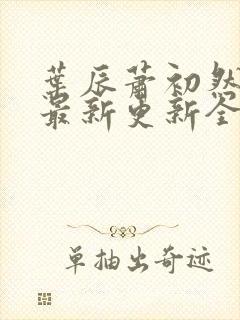 葉辰蕭初然
最新更新全
單抽出奇迹